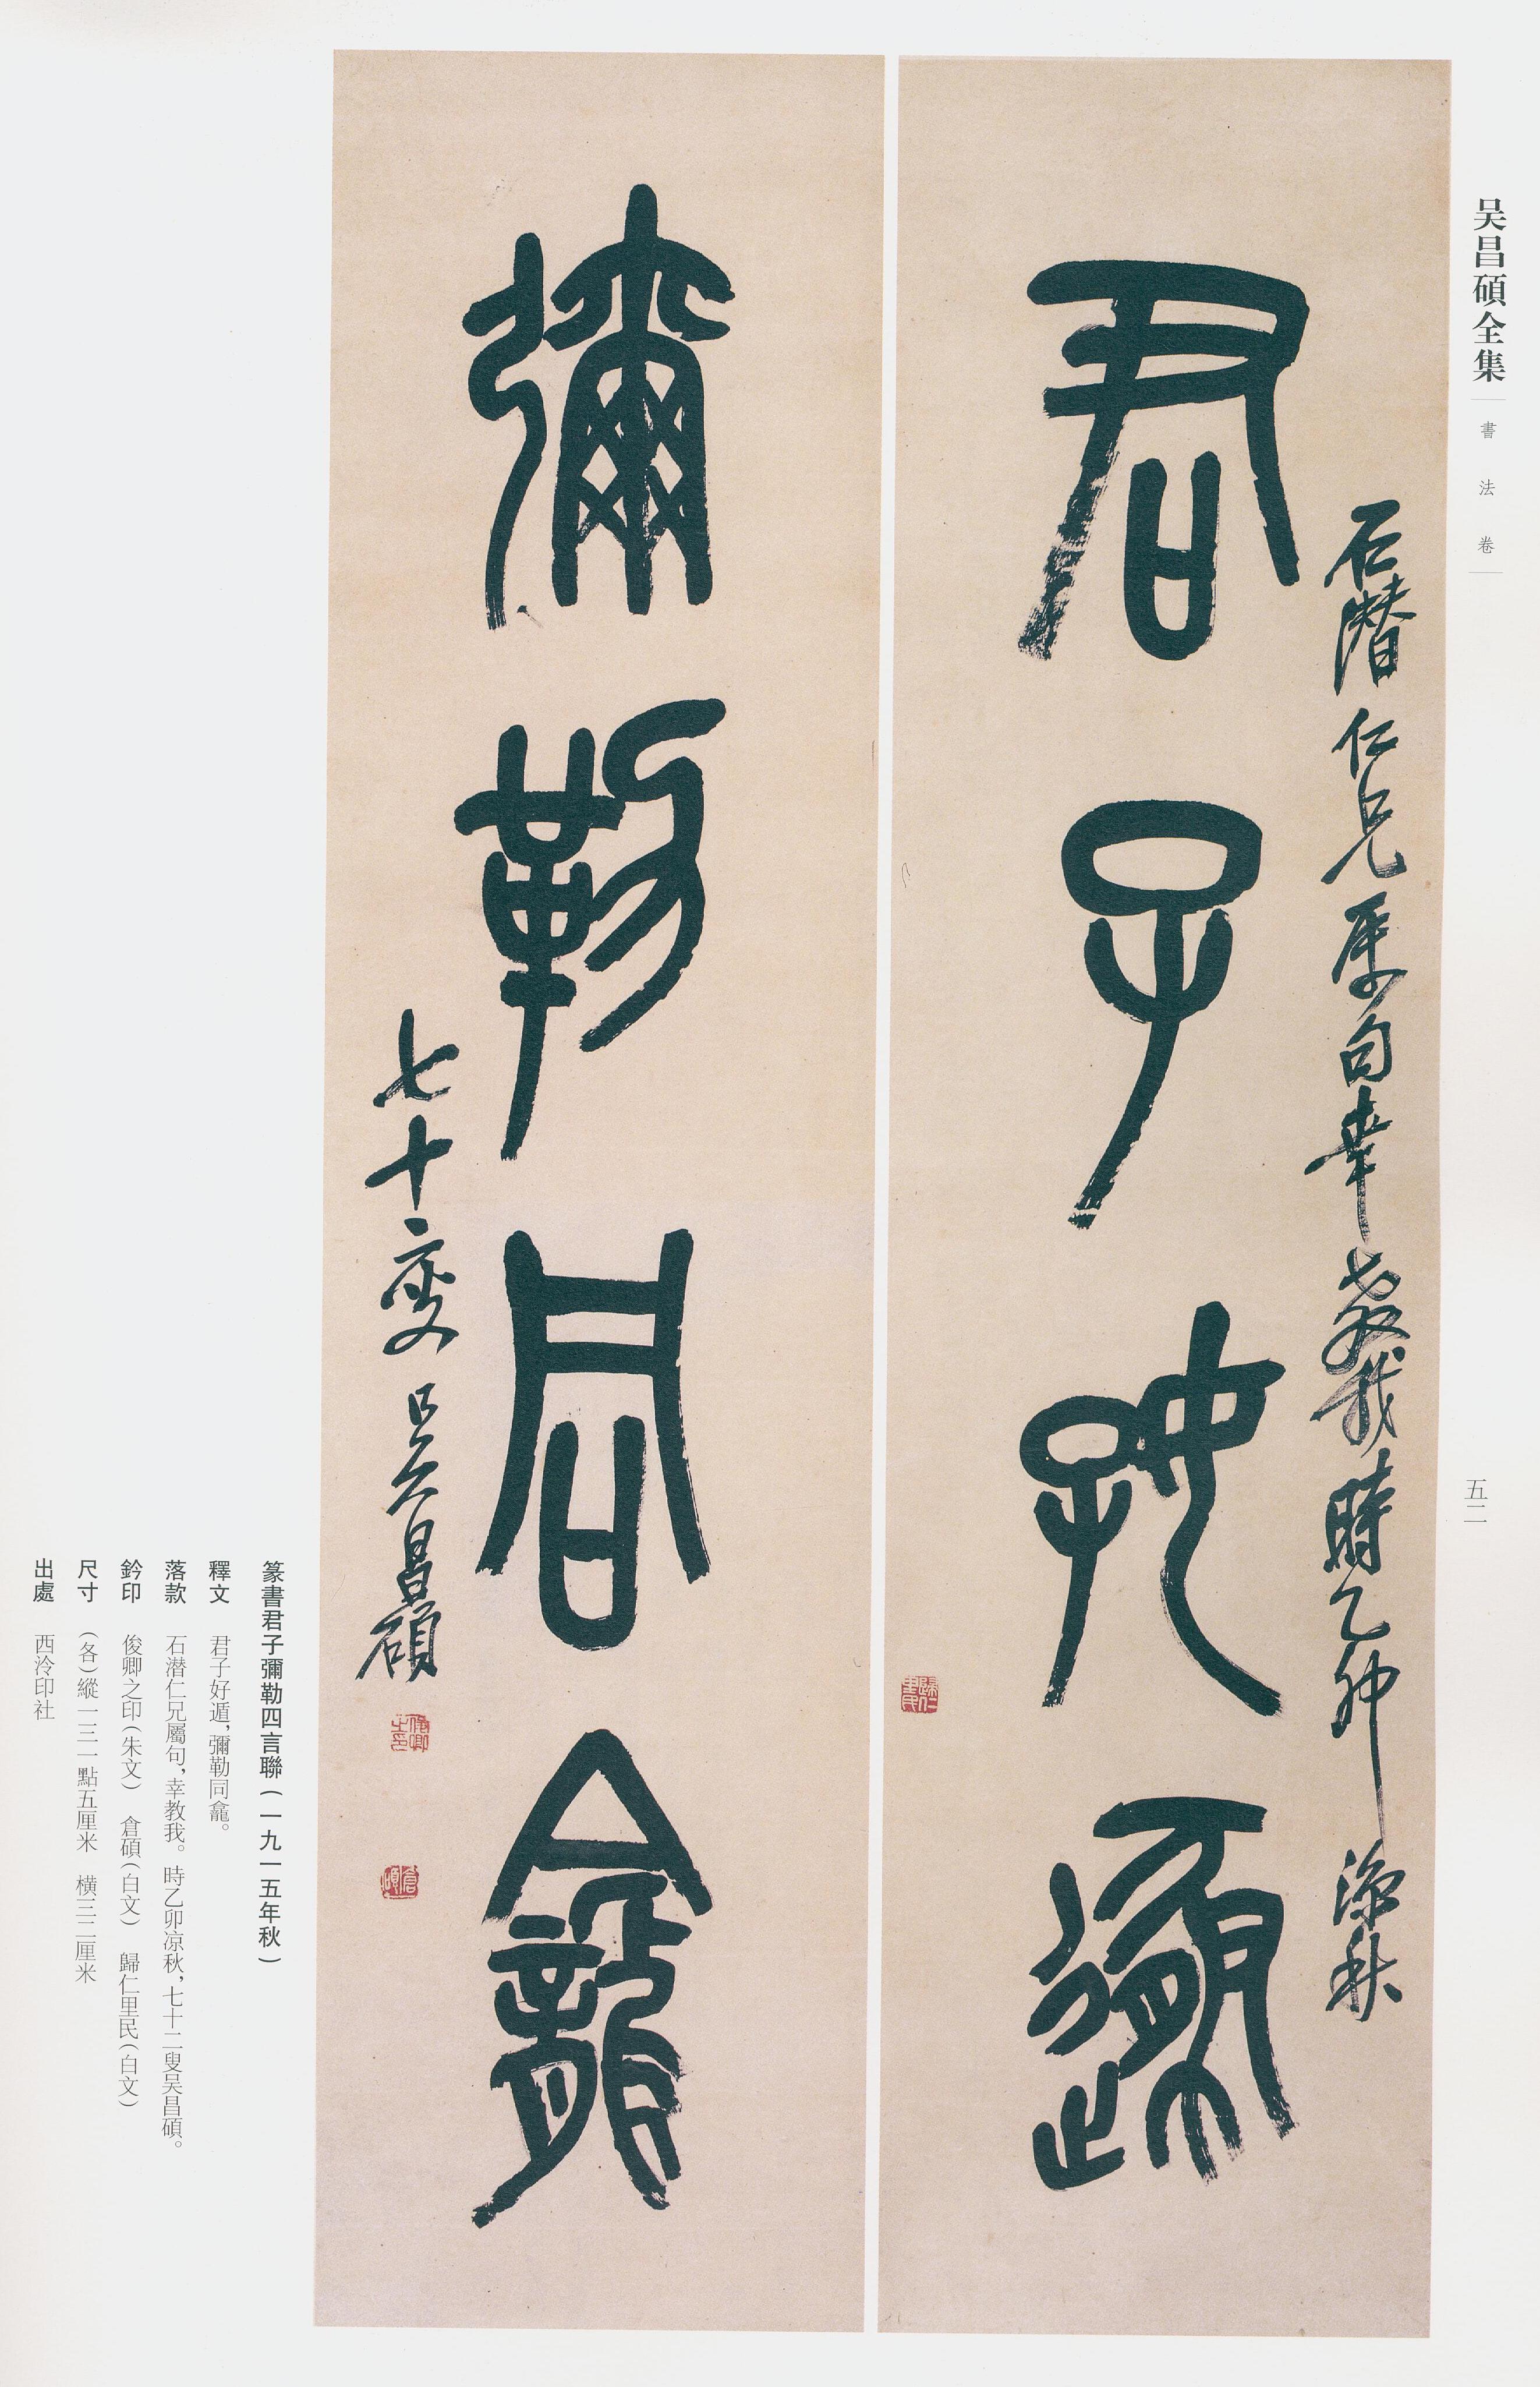 吴昌碩全集
書法卷
五二
石潛仁兄屬句幸教我時乙卯涼秋
君子好遯
歸仁里民
彌勒同龕
七十二叟吳昌碩
俊卿之印
倉碩
篆書君子彌勒四言聯(一九一五年秋)
釋文 君子好遁,彌勒同龕。
落款 石潜仁兄屬句,幸教我。時乙卯凉秋,七十二叟吴昌碩。
鈐印 俊卿之印(朱文) 倉碩(白文) 歸仁里民(白文)
尺寸 (各)縱一三一點五厘米 横三二厘米
出處 西泠印社